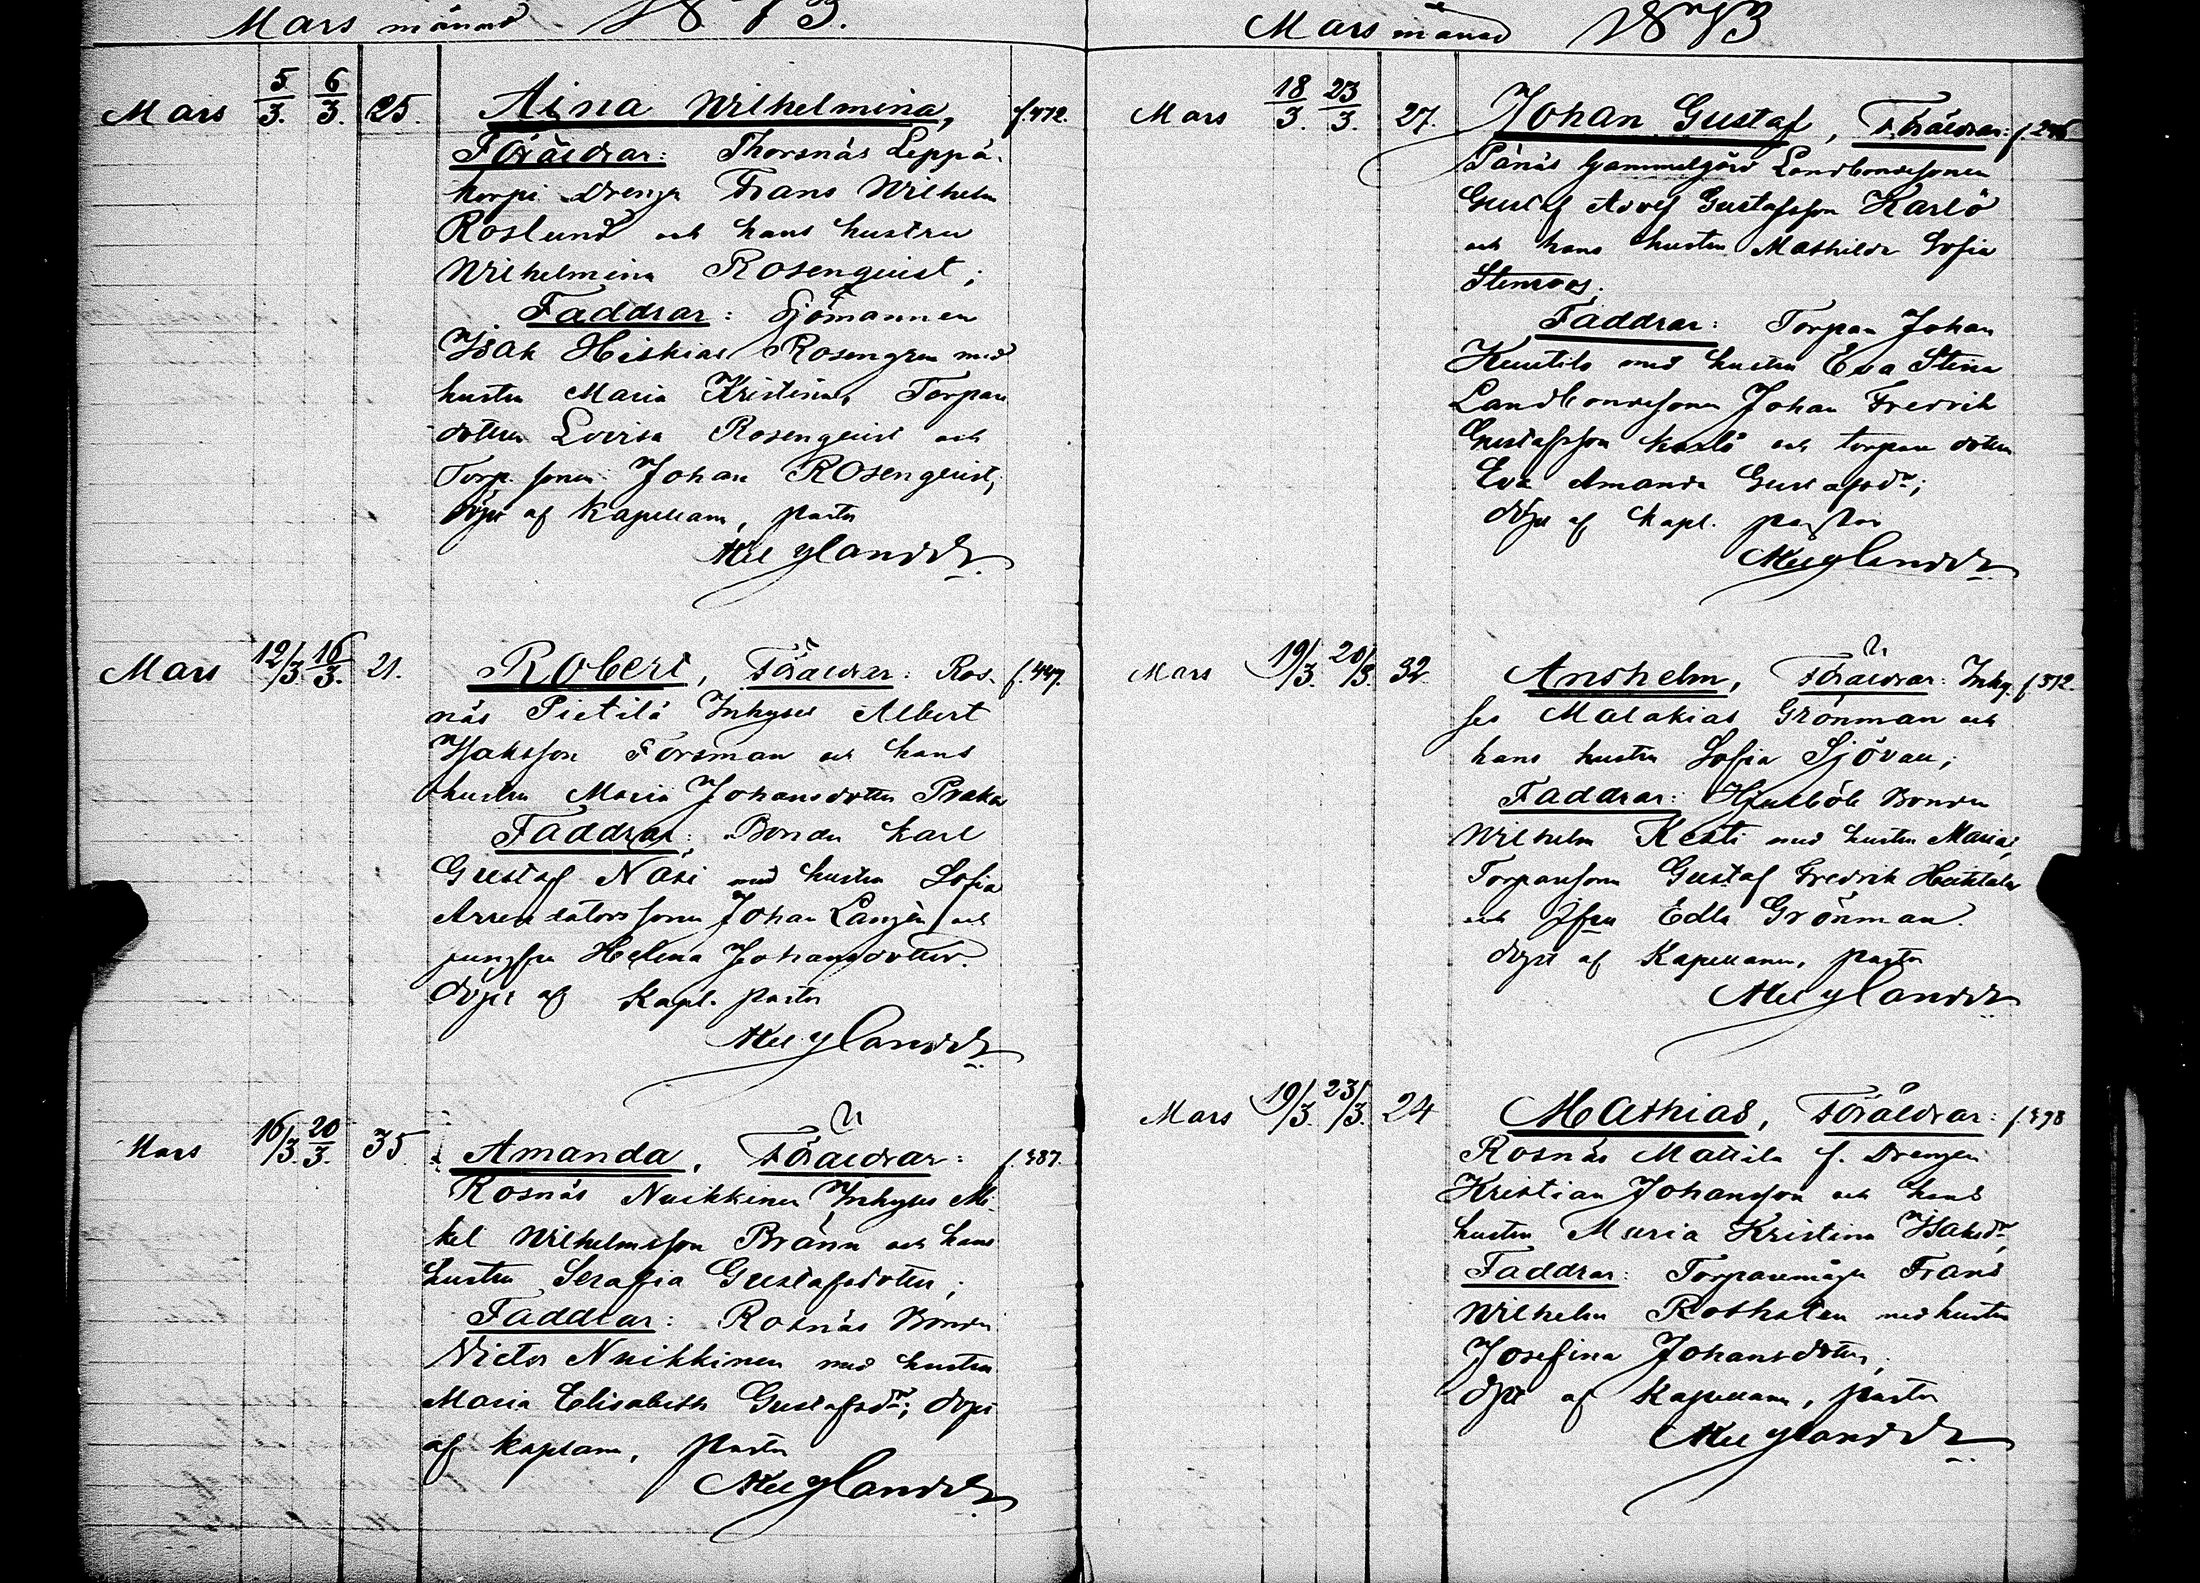 Mars månad 1873.
Mars 5/3. 6/3. 25. Aina Wilhelmina, f. 472.
Föräldrar: Thorsnäs Leppä-
korpi Dreng Frans Wilhelm
Roslund och hans hustru
Wilhelmina Rosenquist;
Faddrar: Sjömannen
Isak Hiskias Rosengren med
hustru Maria Kristina, Torpare
dottern Lovisa Rosenquist och
Torp. sonen Johan Rosenquist,
döpt af Kapellann, pastor
Mars 12/3. 16/3. 21. Robert, Föräldrar: Ros- f. 447.
näs Pietilä Inhyses Albert
Isaksson Forsman och hans
hustru Maria Johansdotter
Faddrar: Bonden Karl
Gustaf Näsi med hustru Sofia
Arrendators sonen Johan Langén och
jungfru Helena Johansdotter.
döpt af Kapl. pastor
Mars 16/3. 20/3. 35. Amanda, Föräldrar: f. 387.
Rosnäs Nuikkinen Inhyses Mi-
kel Wilhelmsson Bränn och hans
hustru Serafia Gustafsdotter;
Faddrar: Rosnäs Bonden
Victor Nuikkinen med hustru
Maria Elisabeth Gustafsdr; döpt
af kaplann, Pastor
Mars månad 1873
Mars 18/3. 23/3. 27. Johan Gustaf, Föräldrar:
Pänäs Gammelgård Landbondesonen
Gustaf Adolf Gustafsson Karlö
och hans hustru Mathilda Sofia
Stenroos;
Faddrar: Torpare Johan
med hustru Eva Stina
Landbondesonen Johan Fredrik
Gustafsson Karlö och torpare dottern
Eva Amanda Gustafsdr;
döpt af Kapl. pastor
Mars 19/3. 20/3. 32. Anshelm, Föräldrar: Inhy- f. 372.
ses Malakias Grönman och
hans hustru Sofia Sjövall;
Faddrar: Hjulböle Bonden
Wilhelm Kesti med hustru Maria,
Torparesonen Gustaf Fredrik
och Jfru Edla Grönman.
döpt af Kapellann, pastor
Mars 19/3. 23/3. 24 Mathias, Föräldrar:
Rosnäs Mattila f. Drengen
Kristian Johansson och hans
hustru Maria Kristina Isaksdr,
Faddrar: Torparemågen Frans
Wilhelm med hustru
Josefina Johansdotter,
döpt af Kapellann, pastor